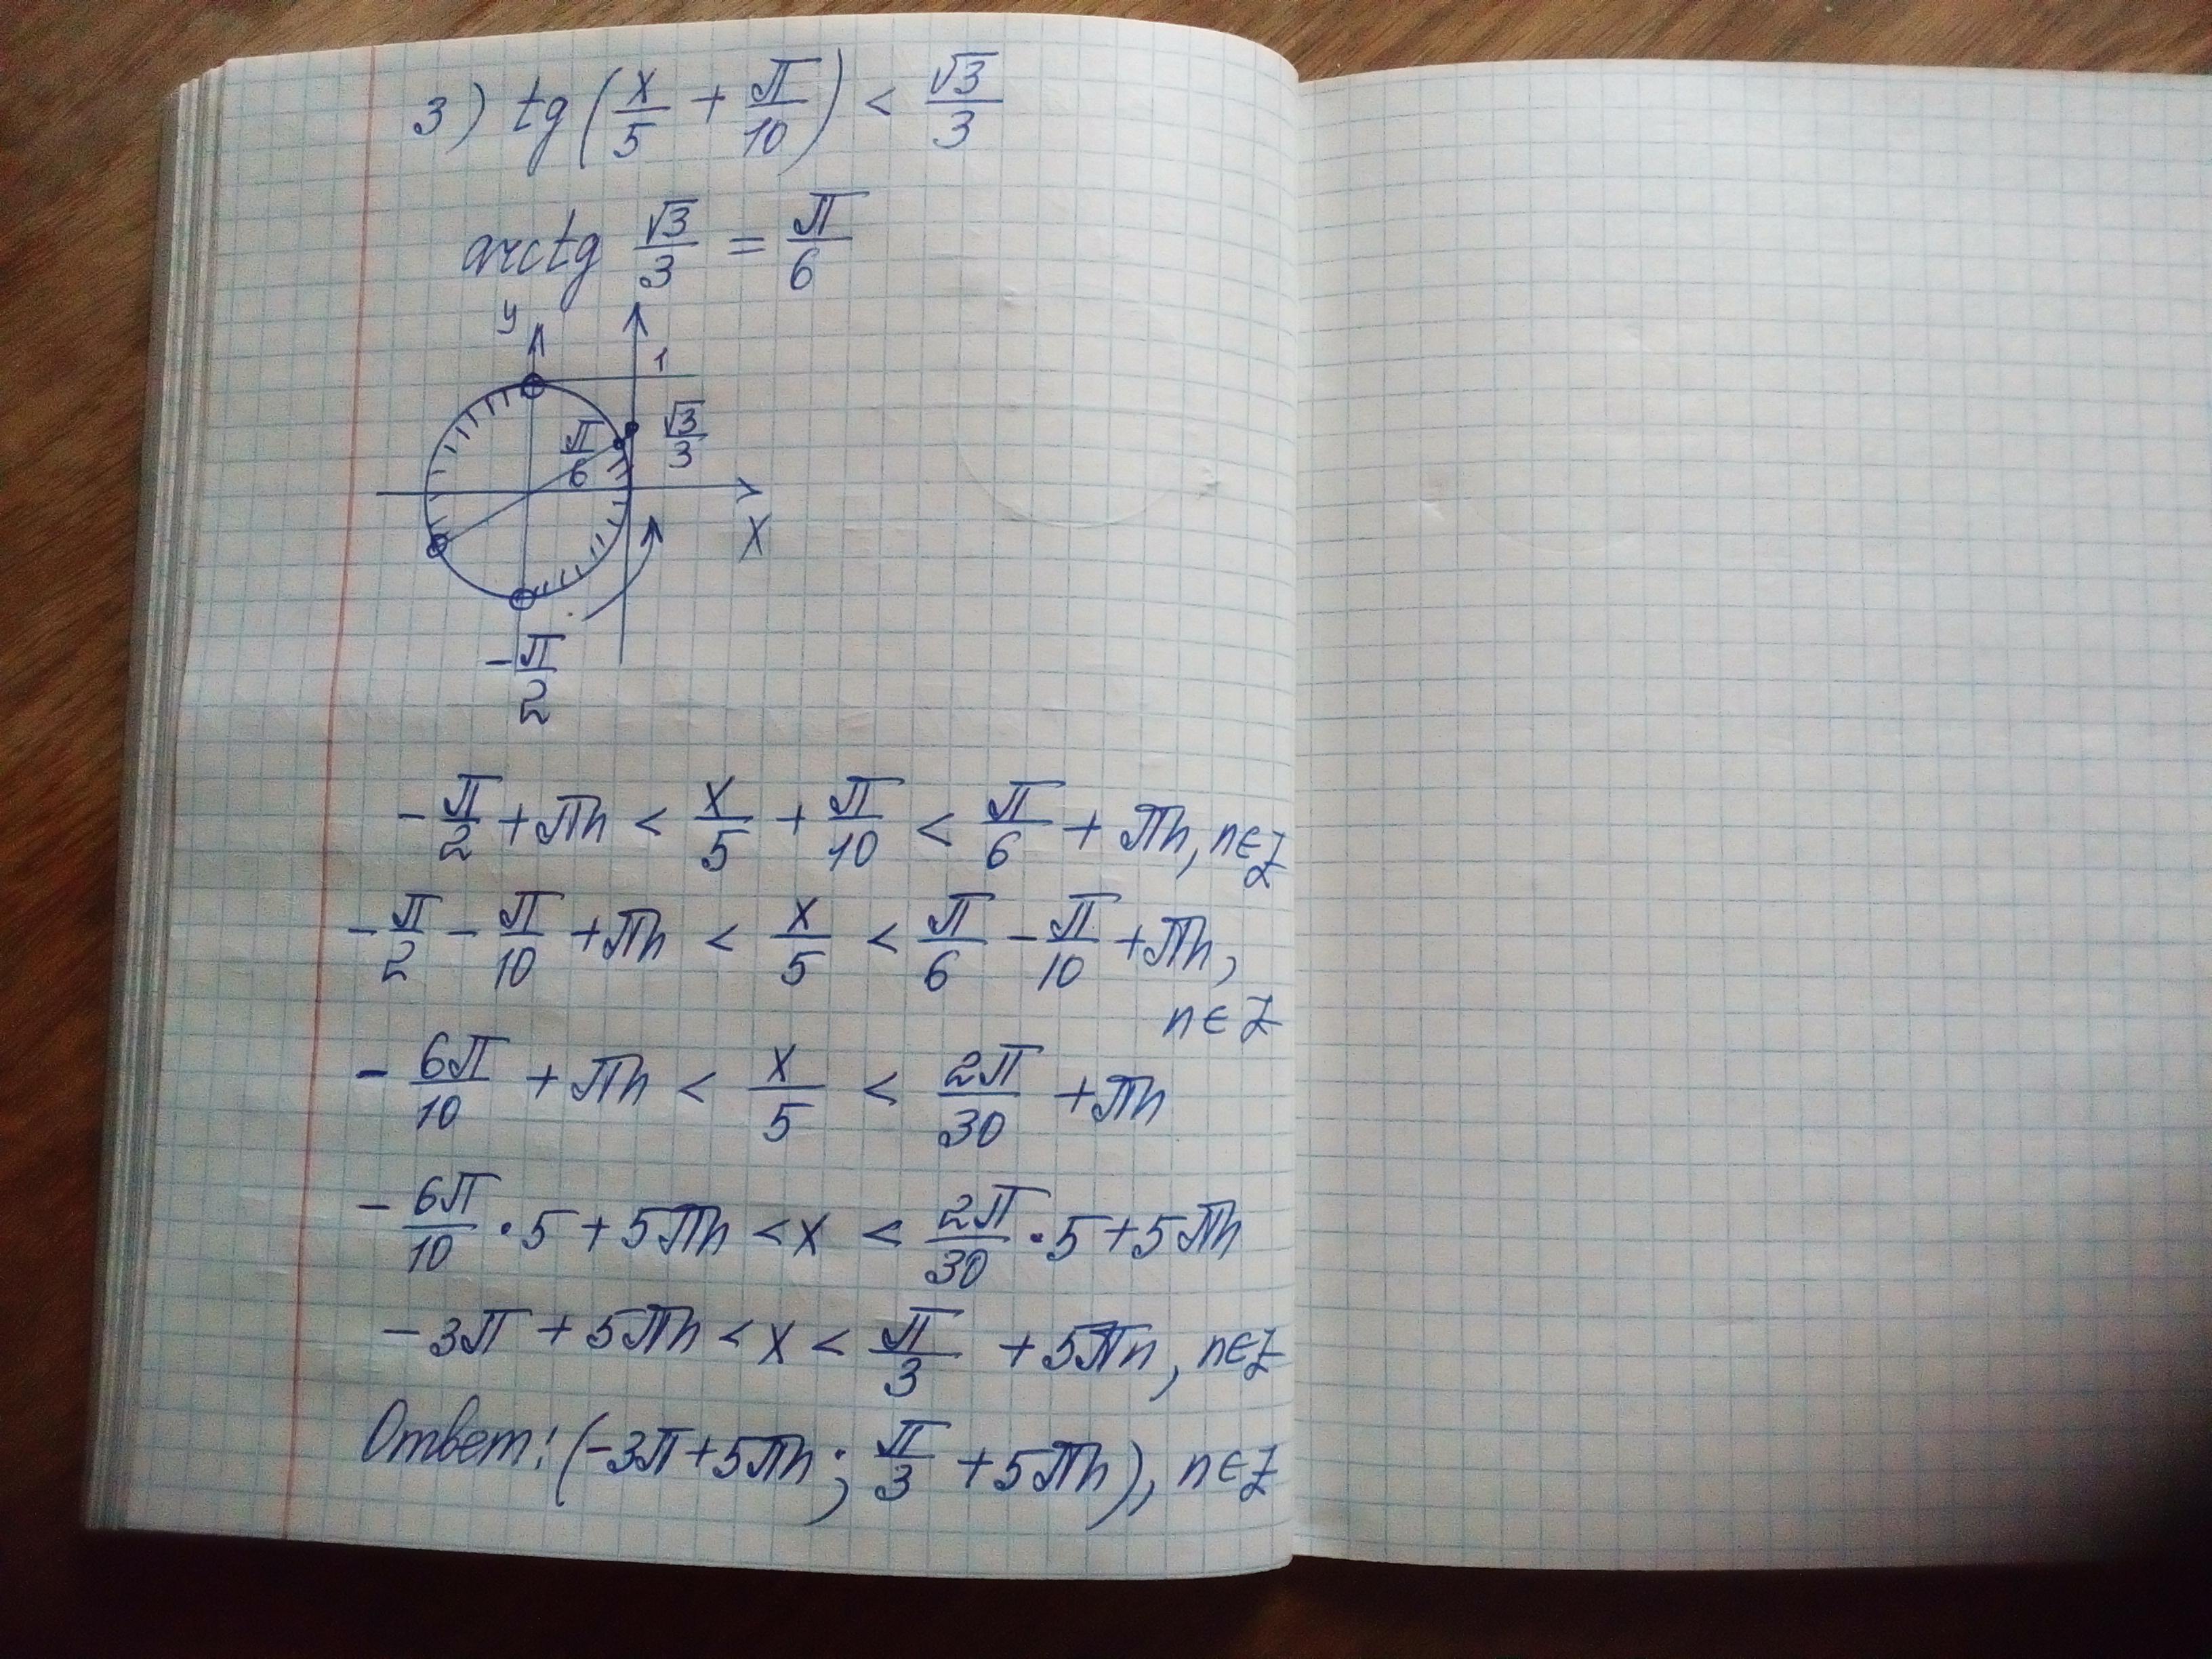 3) tg(x/5 + π/10) < √3/3
arctg √3/3 = π/6
y
1
π/6 √3/3
x
-π/2
-π/2 + πn < x/5 + π/10 < π/6 + πn, n∈Z
-π/2 - π/10 + πn < x/5 < π/6 - π/10 + πn,
n∈Z
- 6π/10 + πn < x/5 < 2π/30 + πn
- 6π/10 · 5 + 5πn < x < 2π/30 · 5 + 5πn
- 3π + 5πn < x < π/3 + 5πn, n∈Z
Ответ: (-3π + 5πn; π/3 + 5πn), n∈Z